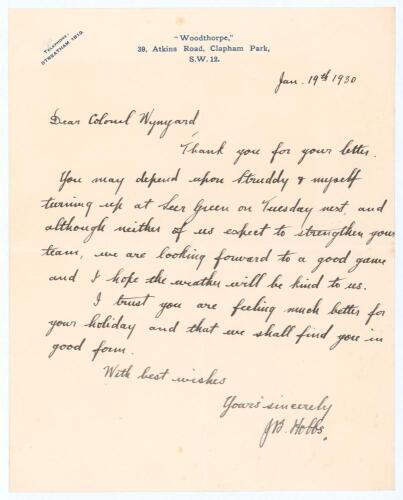 TELEPHONE:
STREATHAM 1919.
"Woodthorpe,"
39, Atkins Road, Clapham Park,
S.W. 12.
Jan. 19th 1930
Dear Colonel Wynyard
Thank you for your letter.
You may depend upon Struddy & myself
turning up at Seer Green on Tuesday next, and
although neither of us expect to strengthen your
team, we are looking forward to a good game
and I hope the weather will be kind to us.
I trust you are feeling much better for
your holiday and that we shall find you in
good form.
With best wishes
Yours sincerely
JB. Hobbs.